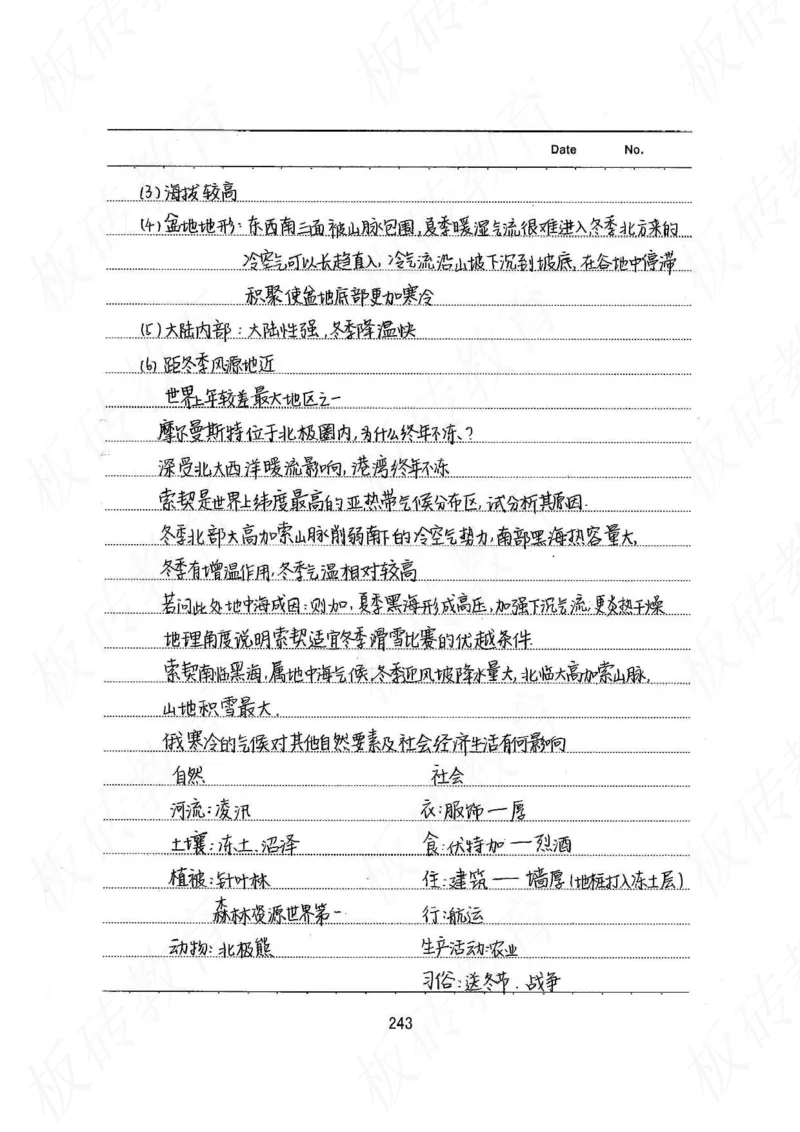 Date No.
(3) 海拔较高
(4) 盆地地形：东西南三面被山脉包围，夏季暖湿气流很难进入冬季北方来的
冷空气可以长趋直入，冷气流沿山坡下沉到坡底，在谷地中停滞
积聚使盆地底部更加寒冷
(5) 大陆内部：大陆性强，冬季降温快
(6) 距冬季风源地近
世界上年较差最大地区之一
摩尔曼斯特位于北极圈内，为什么终年不冻、？
深受北大西洋暖流影响，港湾终年不冻
索契是世界上纬度最高的亚热带气候分布区，试分析其原因．
冬季北部大高加索山脉削弱南下的冷空气势力，南部黑海热容量大，
冬季有增温作用，冬季气温相对较高
若问此处地中海成因：则加，夏季黑海形成高压，加强下沉气流，更炎热干燥
地理角度说明索契适宜冬季滑雪比赛的优越条件．
索契南临黑海，属地中海气候，冬季迎风坡降水量大，北临大高加索山脉，
山地积雪最大．
俄寒冷的气候对其他自然要素及社会经济生活有何影响
自然 社会
河流：凌汛 衣：服饰一厚
土壤：冻土、沼泽 食：伏特加一烈酒
植被：针叶林 住：建筑一墙厚（地桩打入冻土层）
森林资源世界第一 行：航运
动物：北极熊 生产活动：农业
习俗：送冬节．战争
243
板砖教育